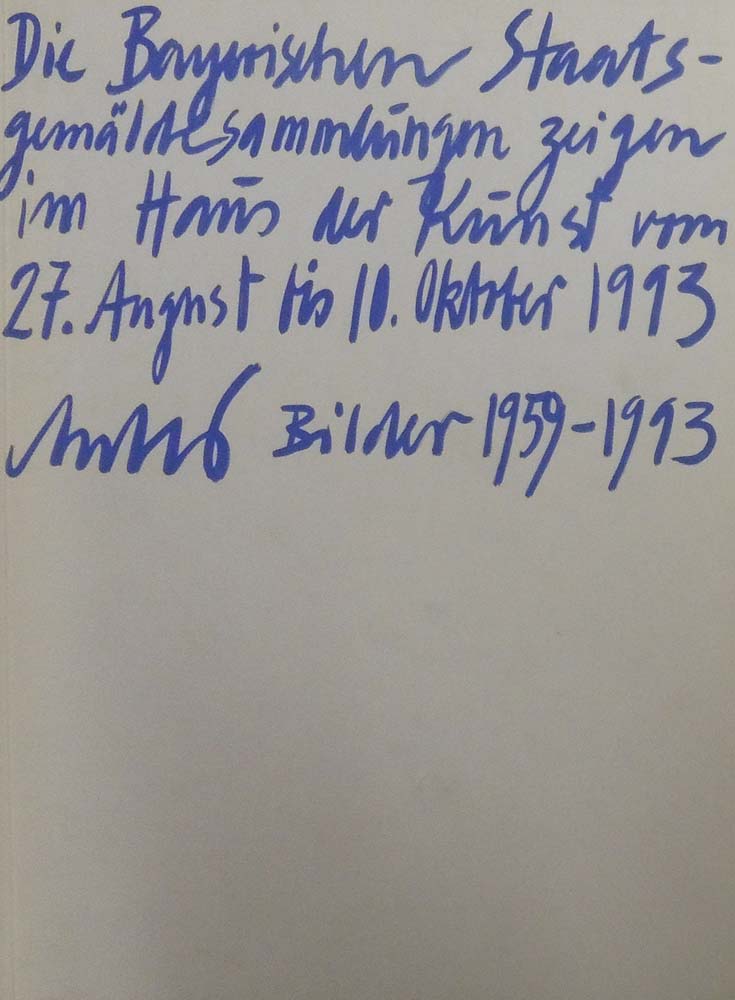 Die Bayerischen Staats-
gemäldesammlungen zeigen
im Haus der Kunst vom
27. August bis 10. Oktober 1993
Antes Bilder 1959-1993